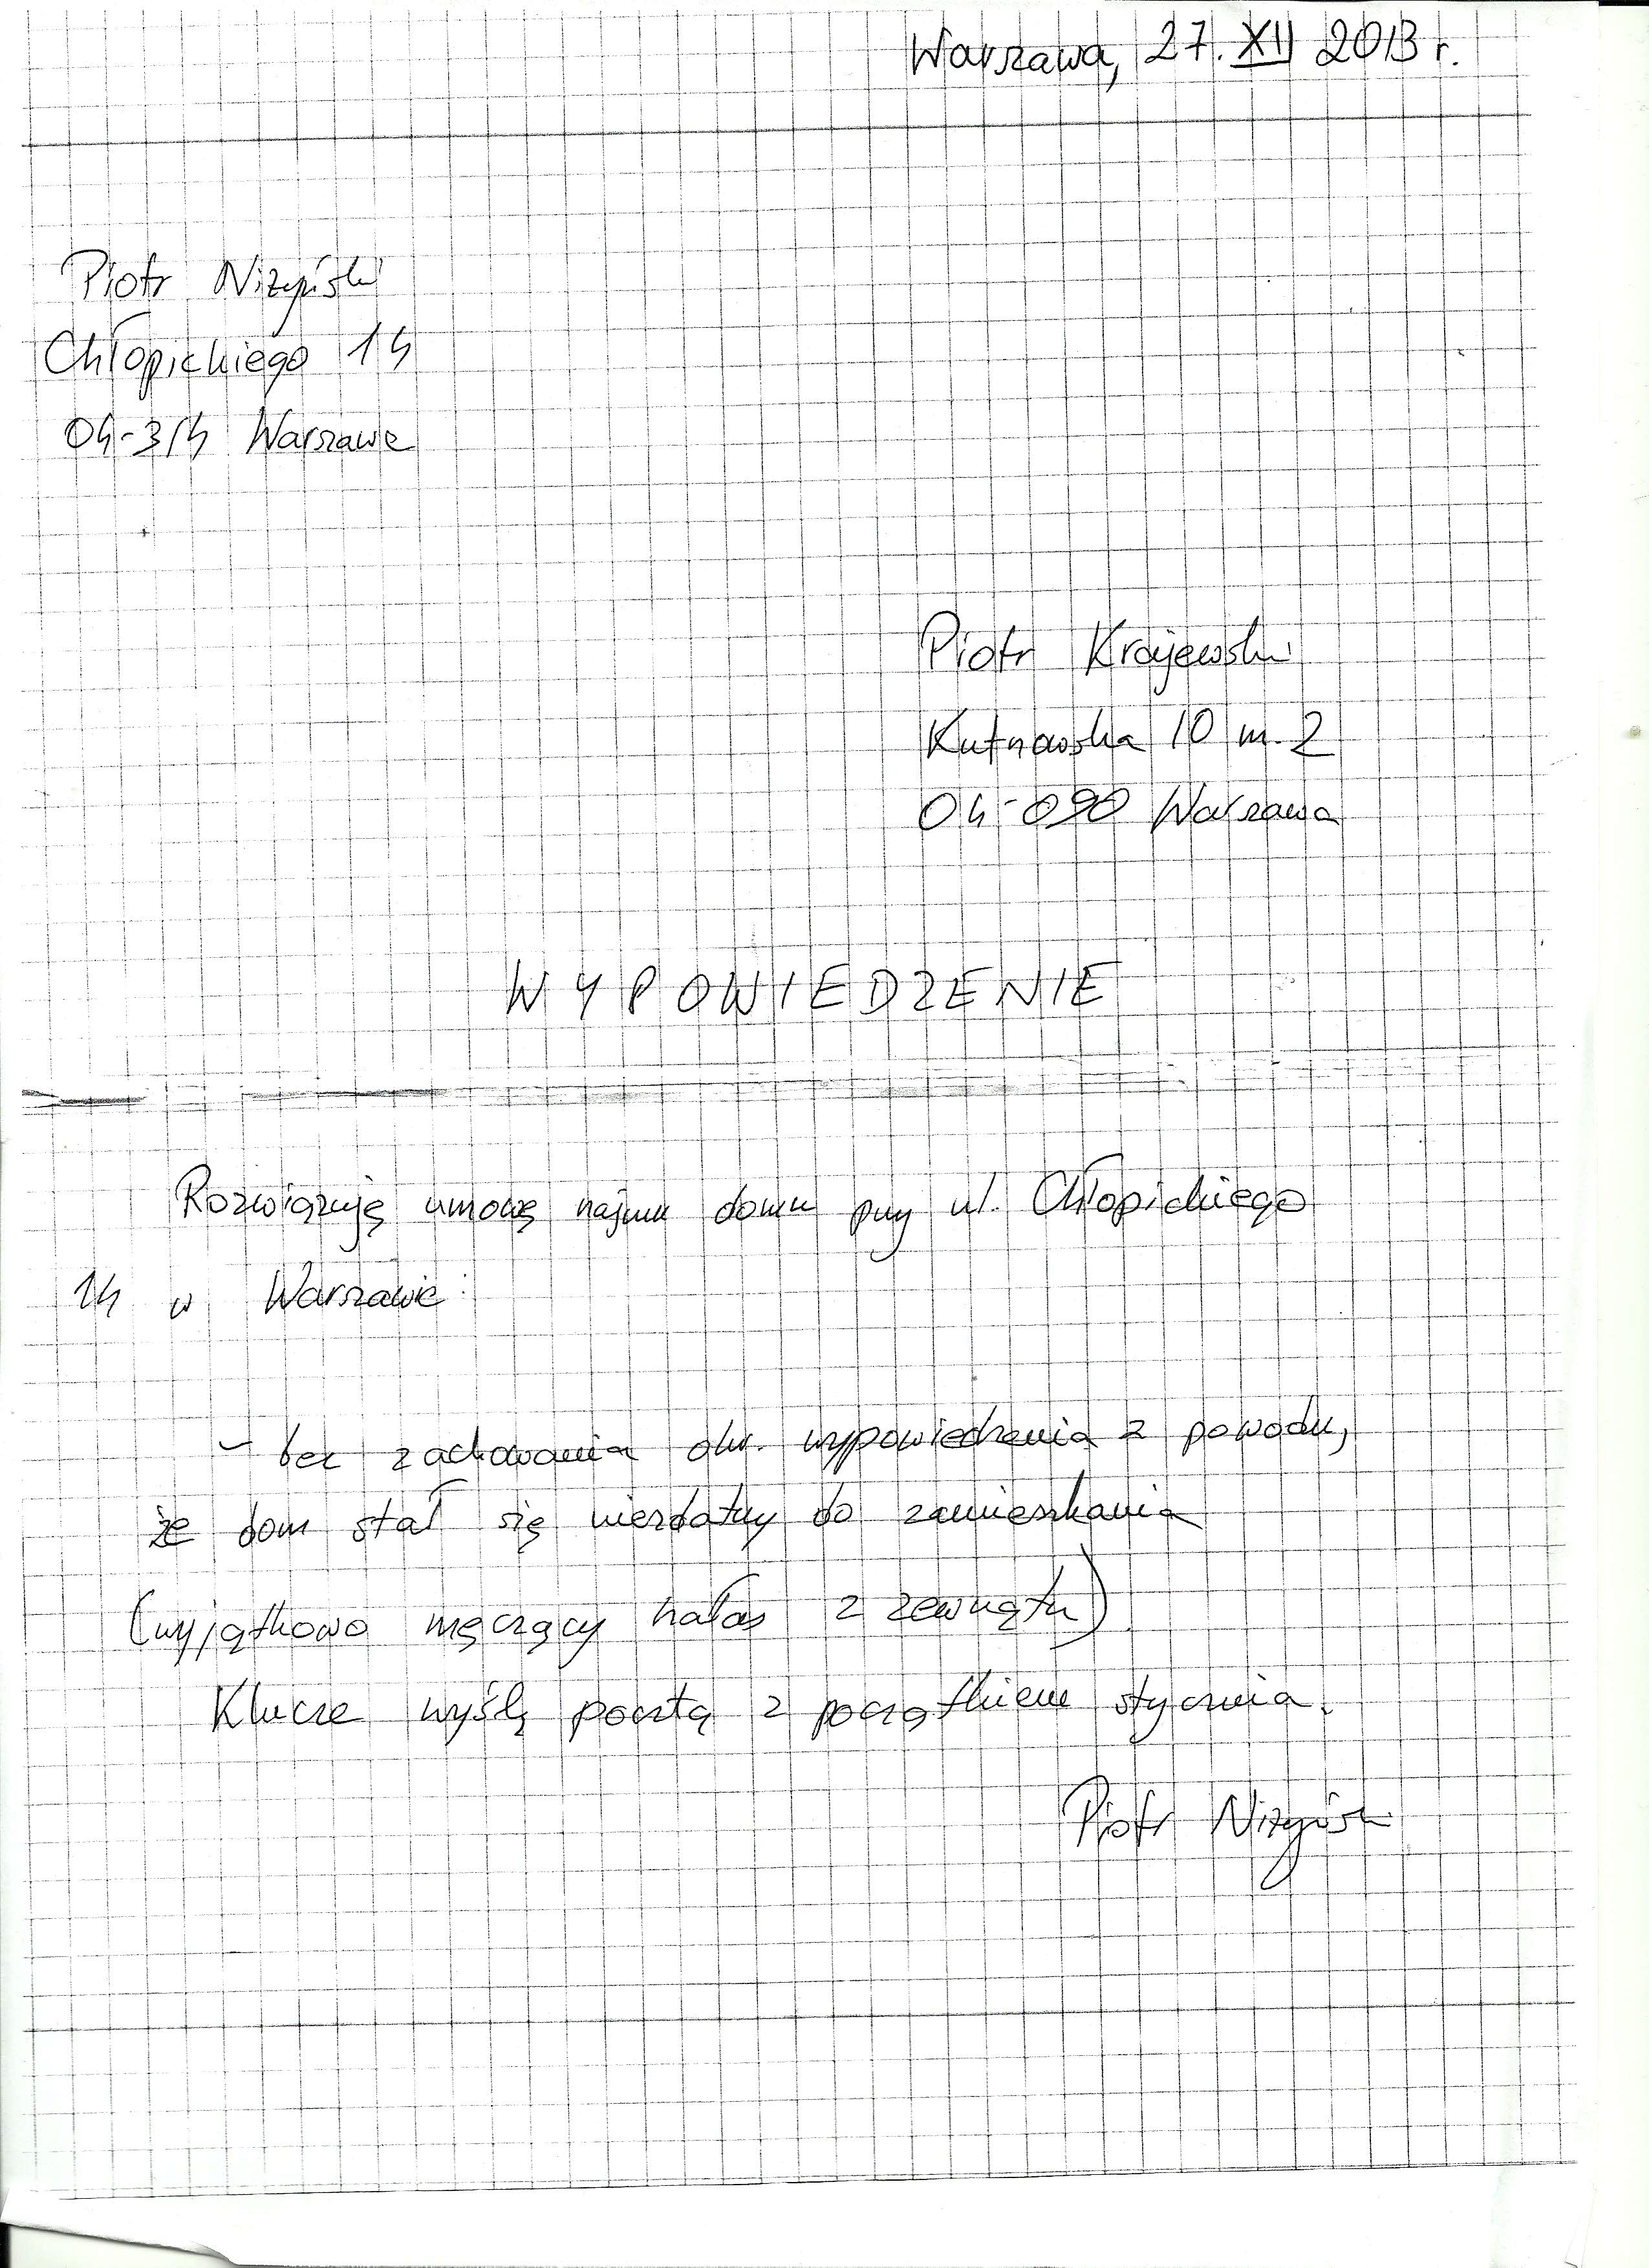 Warszawa, 27. XII 2013 r.
Piotr Niżyński
Chłopickiego 14
04-314 Warszawa
Piotr Krajewski
Kutnowska 10 m. 2
04-090 Warszawa
WYPOWIEDZENIE
Rozwiązuję umowę najmu domu przy ul. Chłopickiego
14 w Warszawie:
- bez zachowania okr. wypowiedzenia z powodu,
że dom stał się niezdatny do zamieszkania
(wyjątkowo męczący hałas z zewnątrz)
Klucze wyślę pocztą z początkiem stycznia.
Piotr Niżyński